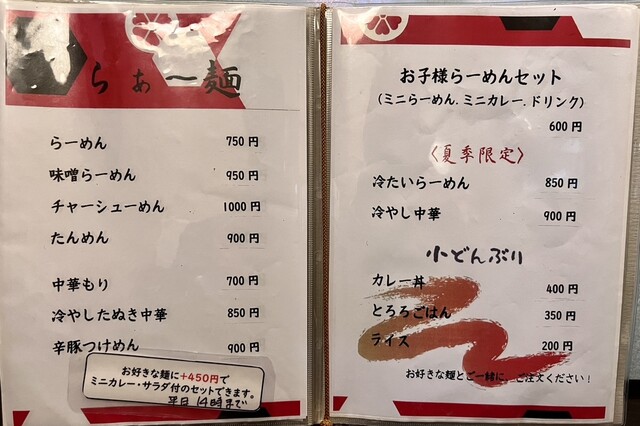 らぁ〜麺
らーめん 750円
味噌らーめん 950円
チャーシューめん 1000円
たんめん 900円
中華もり 700円
冷やしたぬき中華 850円
辛豚つけめん 900円
お好きな麺に+450円で
ミニカレー・サラダ付のセットできます。
平日 14時まで
お子様らーめんセット
(ミニらーめん.ミニカレー.ドリンク)
600円
〈夏季限定〉
冷たいらーめん 850円
冷やし中華 900円
小どんぶり
カレー丼 400円
とろろごはん 350円
ライス 200円
お好きな麺とご一緒に、ご注文ください!